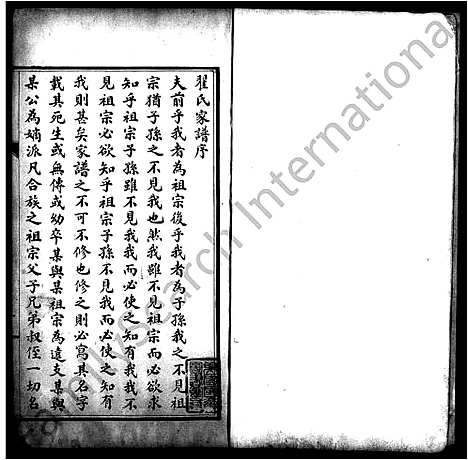 翟氏家譜序
夫前乎我者為祖宗後乎我者為子孫我之不見祖
宗猶子孫之不見我也然我雖不見祖宗而必欲求
知乎祖宗子孫雖不見我我而必使之知有我我不
見祖宗必欲知乎祖宗子孫不見我而必使之知有
我則甚矣家譜之不可不修也修之則必寫其名字
載其死生或無傳或幼卒某與某祖宗為遠支某與
某公為嫡派凡合族之祖宗父子兄弟叔侄一切名
ilySearch International